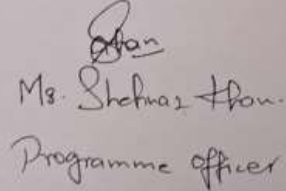 Khan
Ms. Shehnaz Khan.
Programme Officer